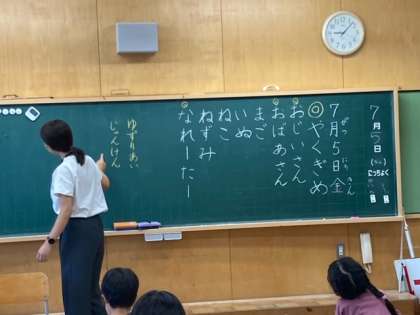 7月5日
にっちょく
7月5日金
がつ
にち
きん
◎やくぎめ
おじいさん
おばあさん
まご
いぬ
ねこ
ねずみ
なれーたー
ゆずりあい
じゃんけん